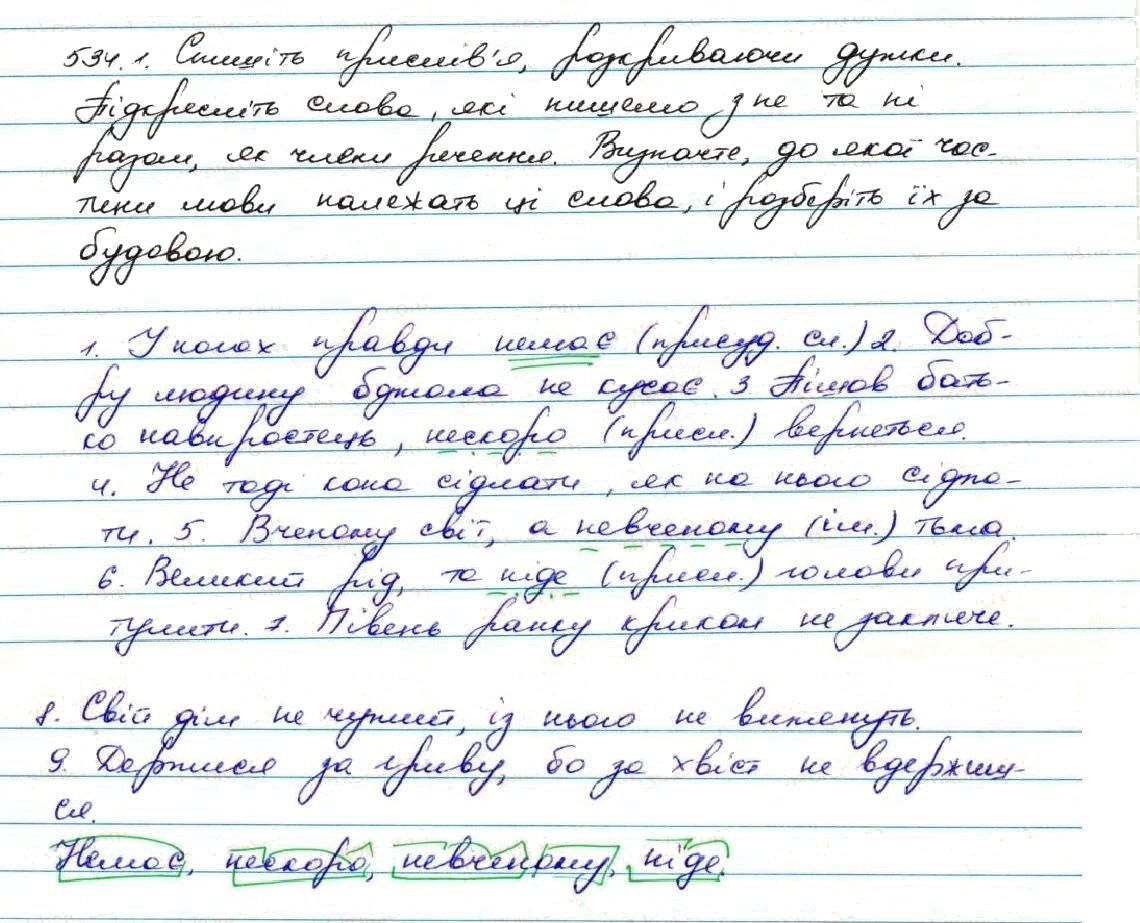 534.1. Спишіть прислів'я, розкриваючи дужки.
Підкресліть слова, які пишемо з не та ні
разом, як члени речення. Визначте, до якої час-
тини мови належать ці слова, і розберіть їх за
будовою.
1. У ногах правди немає (присуд. сл.) 2. Доб-
ру людину бджола не кусає. 3 Пішов бать-
ко навпростець, нескоро (присл.) вернеться.
4. Не тоді коня сідлати, як на нього сіда-
ти. 5. Вченому світ, а невченому (ім.) тьма.
6. Великий рід, та ніде (присл.) голови при-
тулити. 7. Півень ранку криком не закличе.
8. Свій дім не чужий, із нього не виженуть.
9. Держися за гриву, бо за хвіст не вдержиш-
ся.
Немає, нескоро, невченому, ніде.